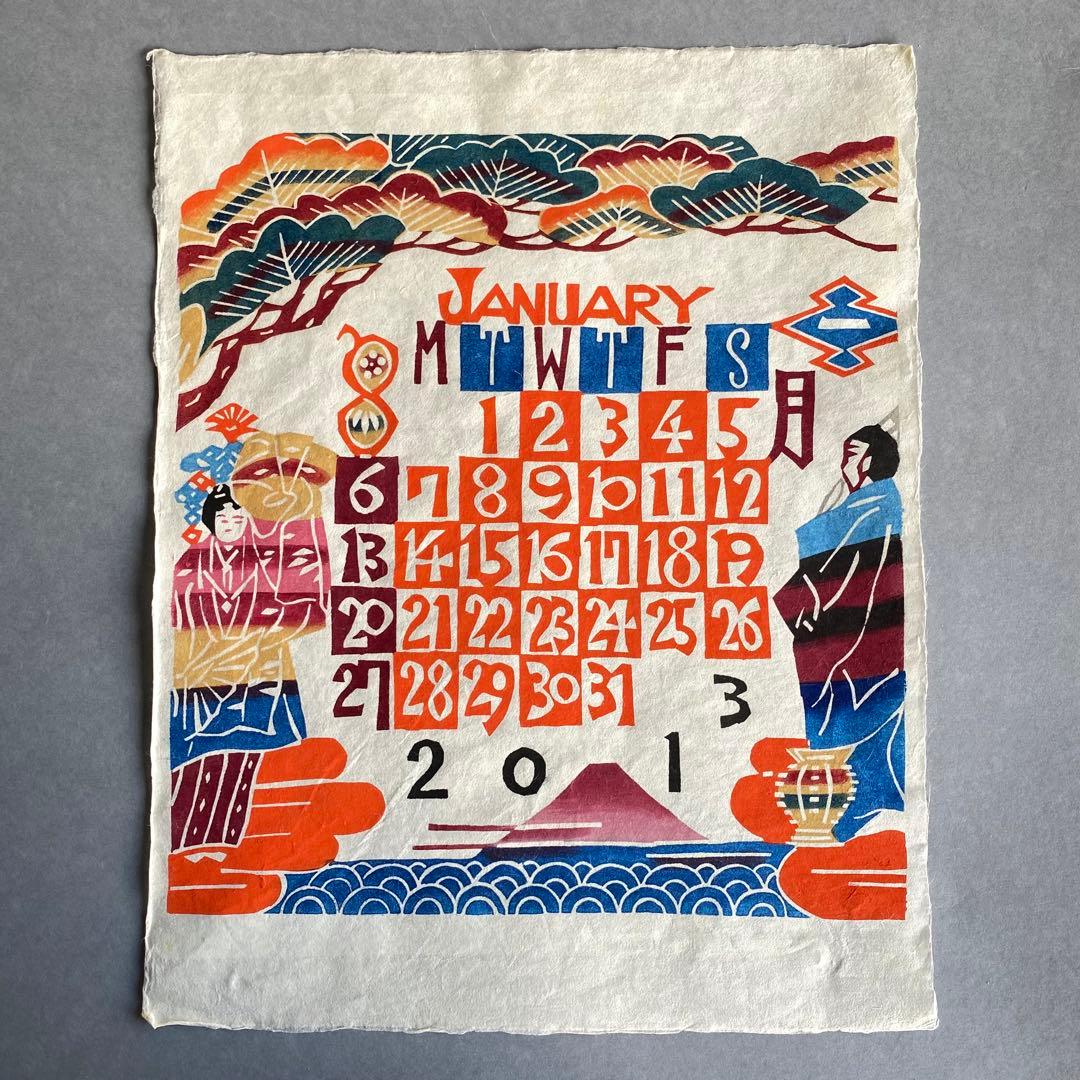 JANUARY
一月
S M T W T F S
1 2 3 4 5
6 7 8 9 10 11 12
13 14 15 16 17 18 19
20 21 22 23 24 25 26
27 28 29 30 31
2 0 1 3